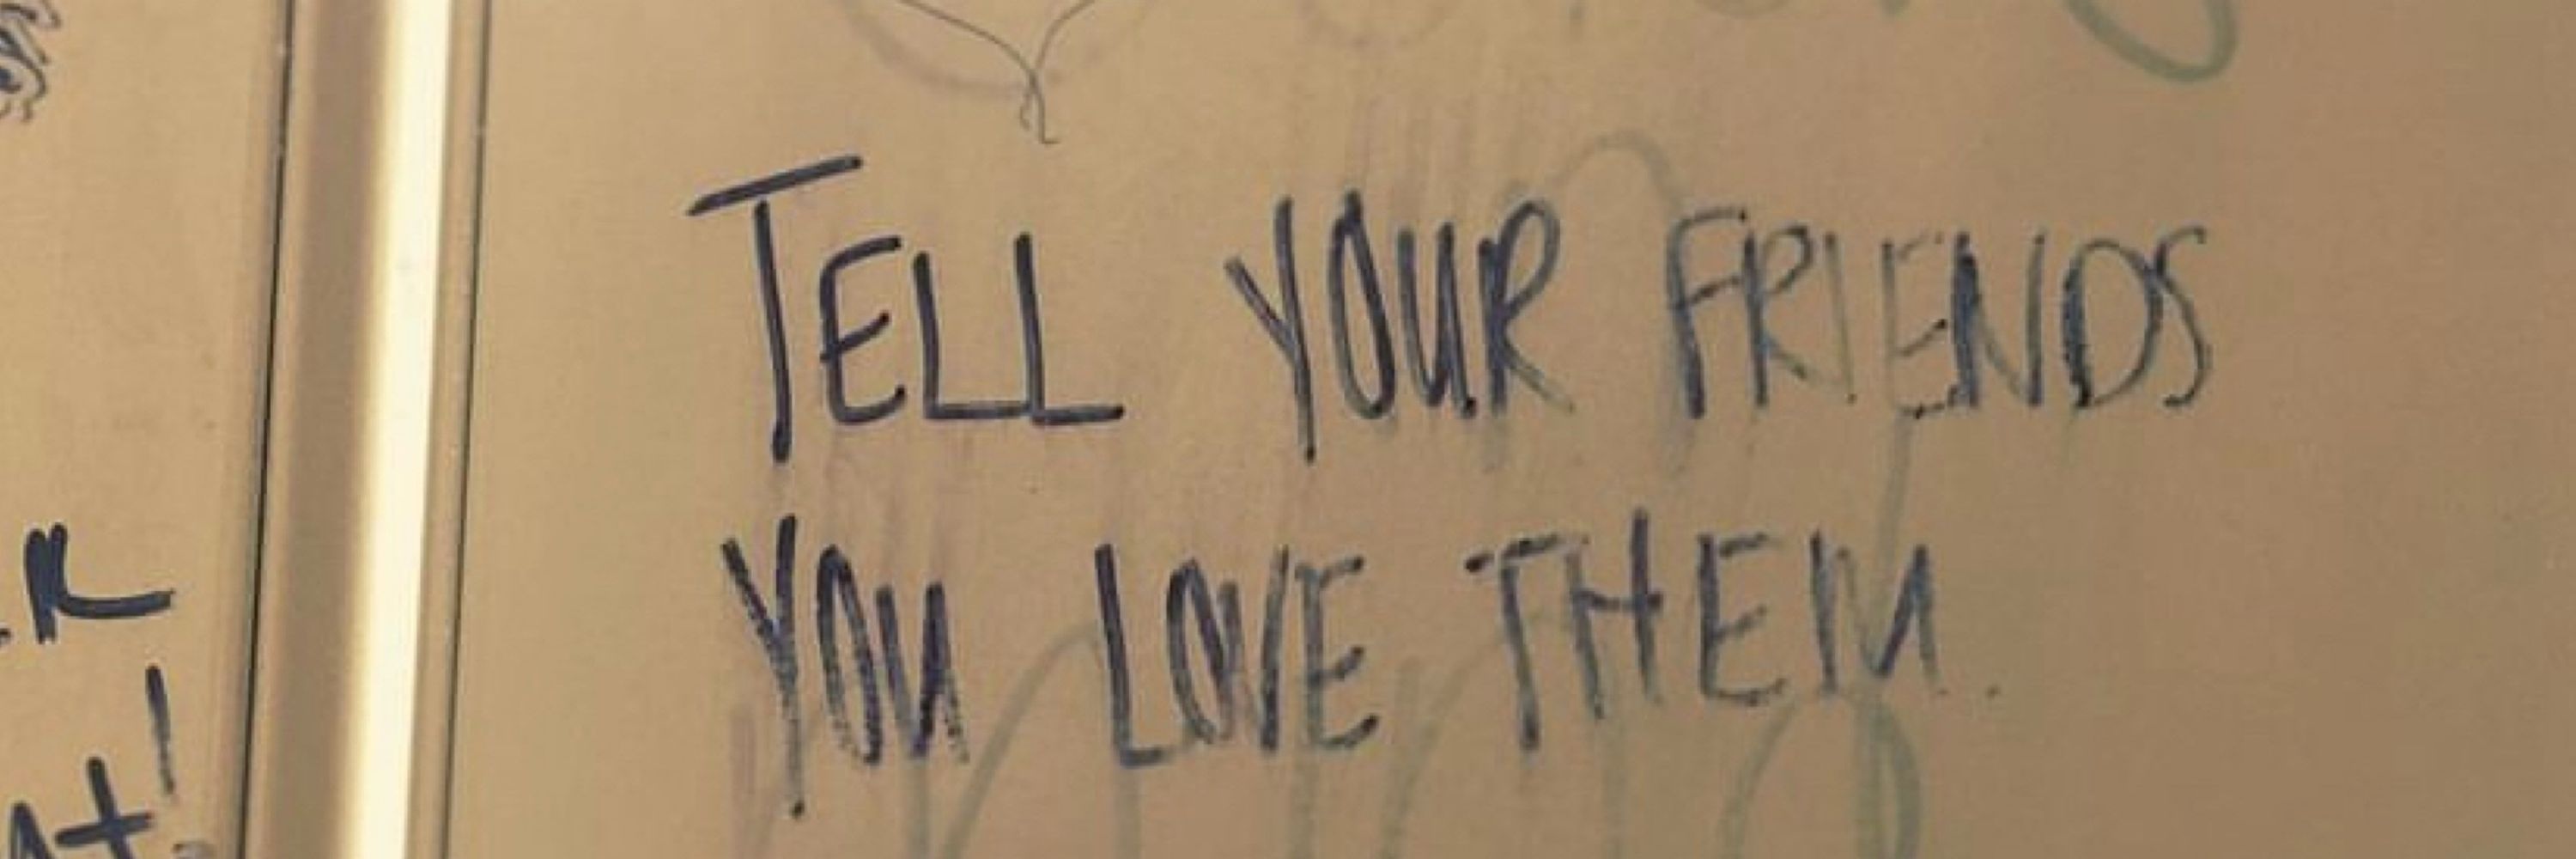 TELL YOUR FRIENDS
YOU LOVE THEM.